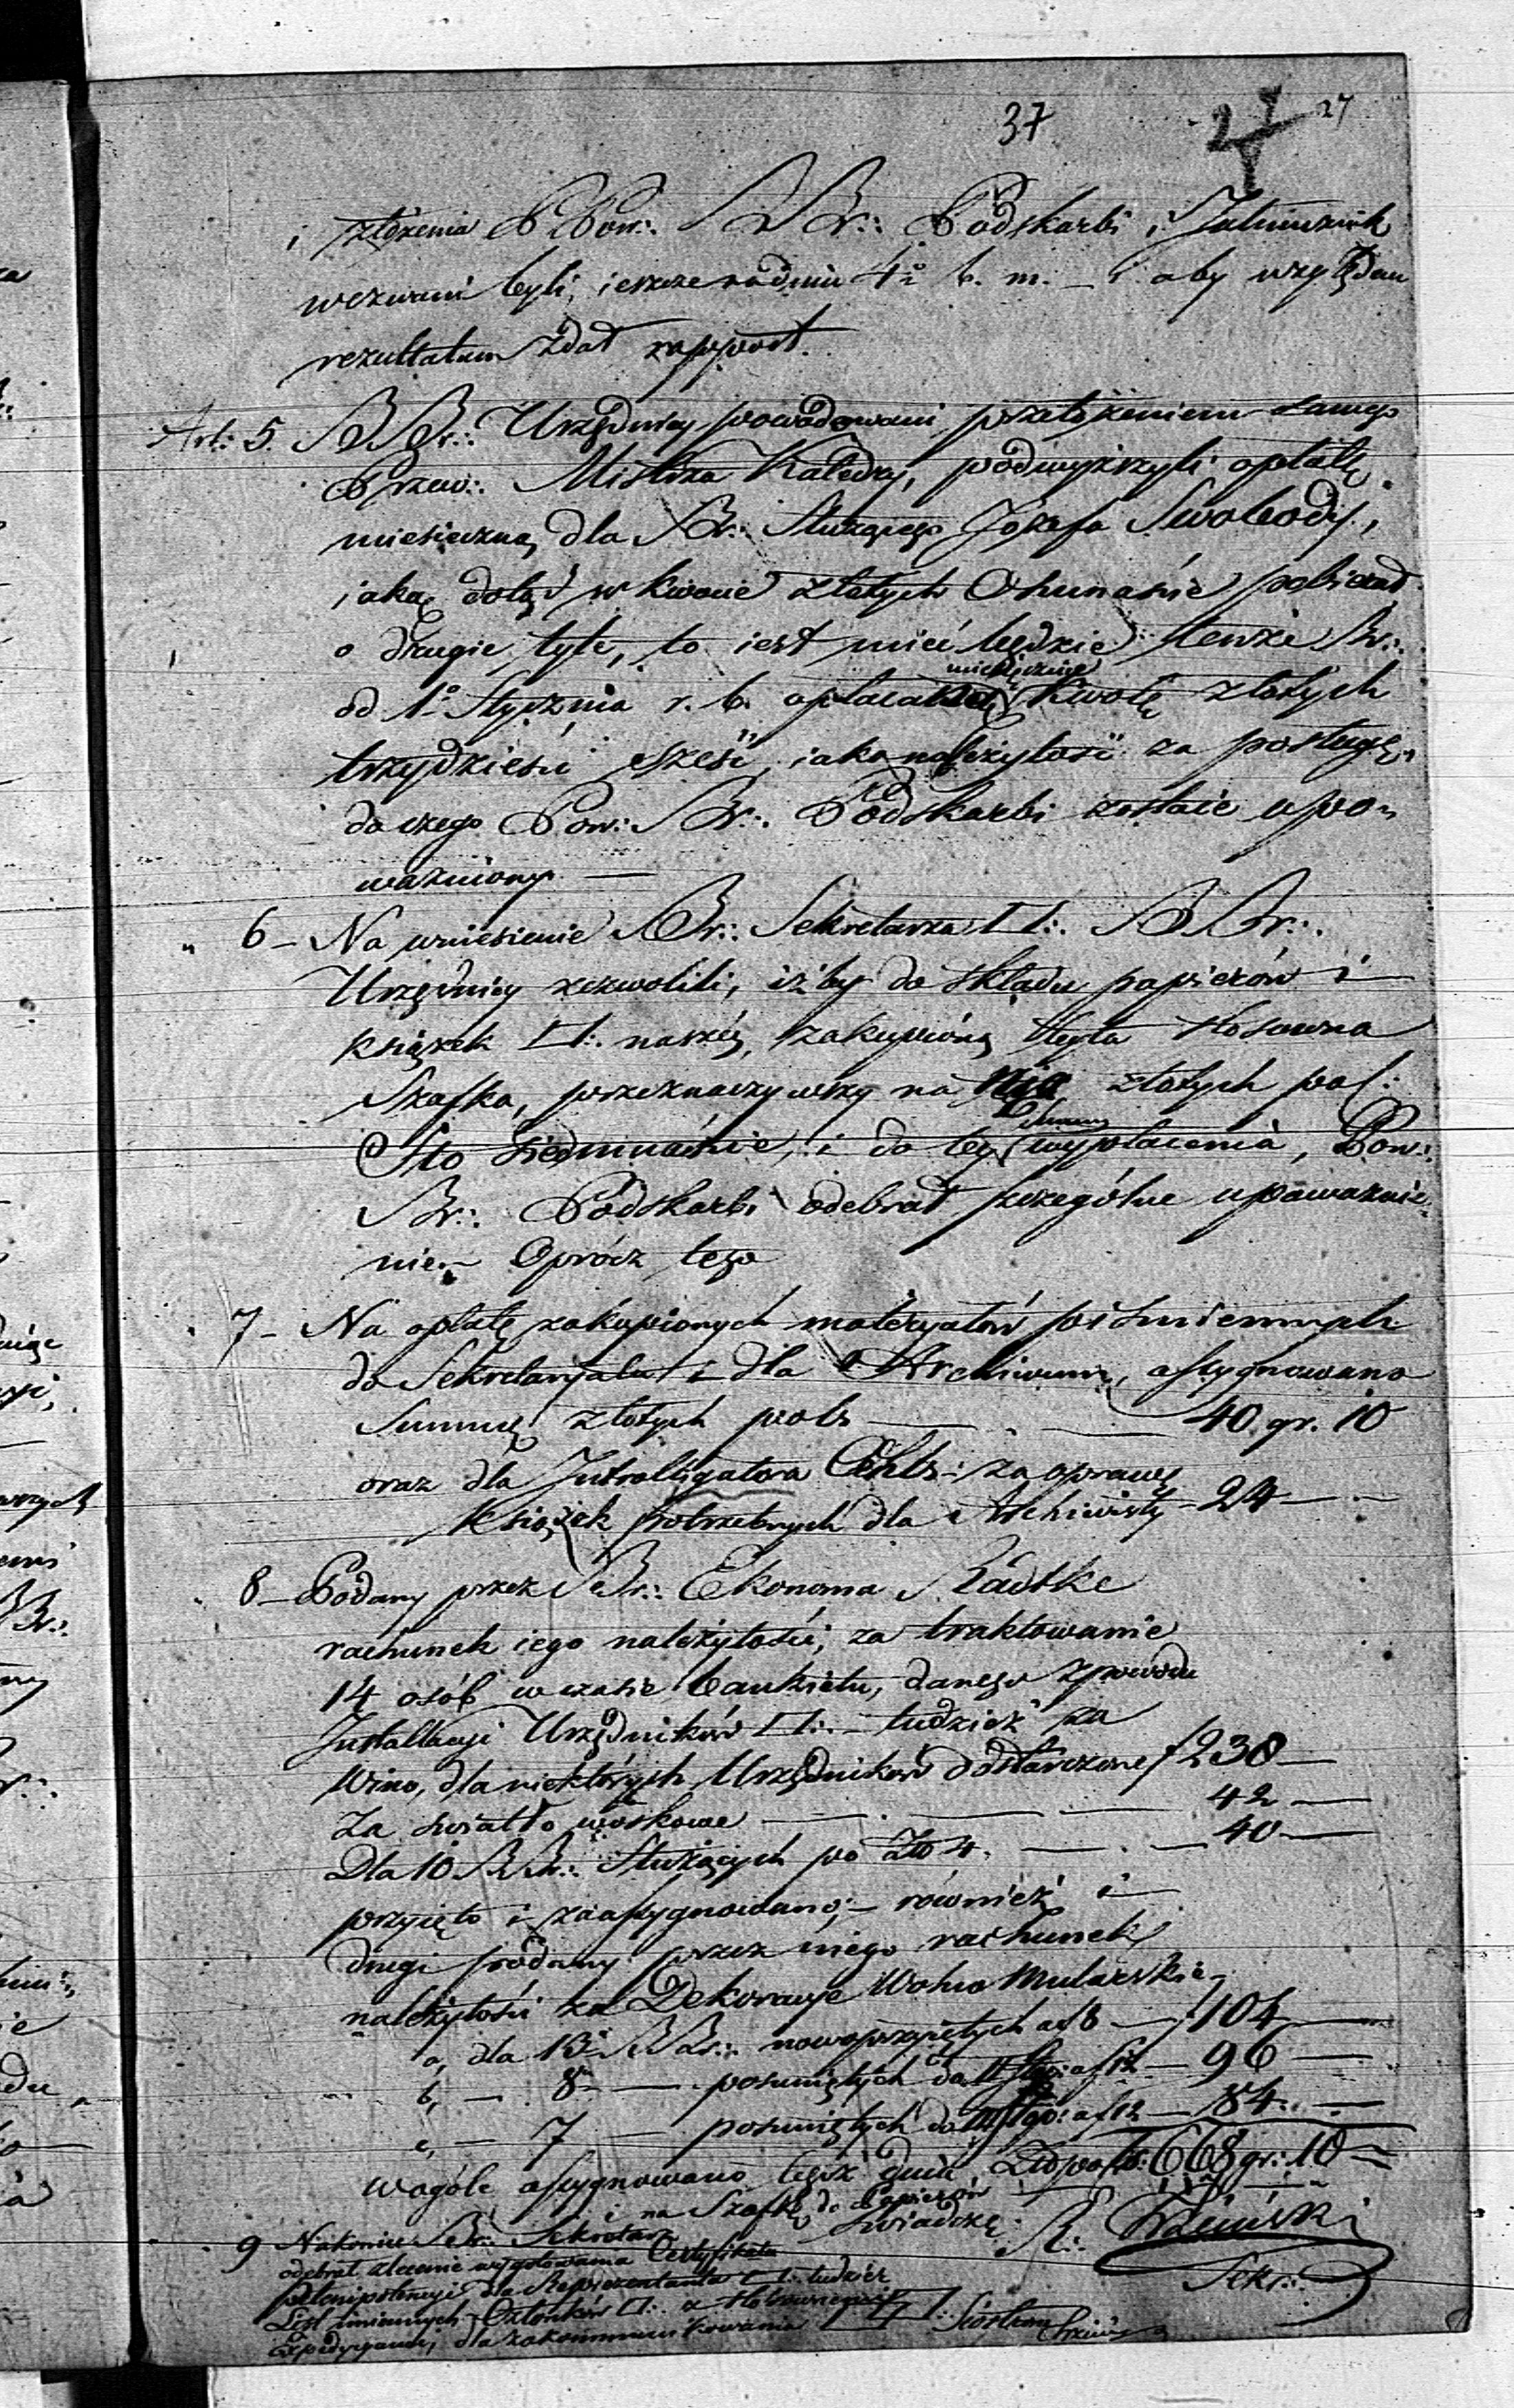 37 27 27
i złożenia PPow:. BBr:. Podskarbi i Jałmużnik
wezwani byli, ieszcze na dniu 4º b. m. – i aby względem
rezultatum zdał rapport.
Art: 5. BBr:. Urzędnicy powodowani przełożeniem samego
Przew:. Mistrza Katedry, podwyższyli opłatę
miesięczną dla Br:. Służącego Józefa Swobody,
iaką dotąd w kwocie złotych Ośmnaście pobierał
o drugie tyle, to iest mieć będzie tenże Br:.
od 1º Stycznia r. b. opłacaną miesięcznie kwotę złotych
trzydzieści sześć, iako należytość za posługę,
do czego Pow:. Br:. Podskarbi zostaie upo-
ważniony. —
" 6 – Na wniesienie Br:. Sekretarza □:. BBr:.
Urzędnicy zezwolili, iżby do składu papierów i
książek □:. naszéy, zakupioną była stosowna
Szafka, przeznaczywszy na nią złotych pol:
Sto siedmnaście, i do tey Summy wypłacenia, Pow:.
Br:. Podskarbi odebrał szczególne upoważnie-
nie. – Oprócz tego
" 7 – Na opłatę zakupionych materyałów piśmiennych
do Sekretaryatu i dla Archiwum, assygnowano
Summę złotych pols — . — 40 gr. 10
oraz dla Introlligatora za oprawę
Książek potrzebnych dla Archiwisty – 24 — . —
" 8 – Podany przez Br:. Ekonoma Radtke
rachunek iego należytości, za traktowanie
14 osób w czasie bankietu, danego z powodu
Installacyi Urzędników □:. – tudzież za
Wino, dla niektórych Urzędników dostarczone f 238 —
Za światło woskowe — . — — 42 —
Dla 10 BBr:. Służących po Zło 4. — . — 40 —
przyięto i zaassygnowano; – również i
drugi podany przez niego rachunek
należytości za Dekoracye Wolno Mularskie,
a, dla 13 BBr:. nowoprzyiętych a f 8 — 104 —
b, — 8 — posuniętych do II Stop: a f 12 — 96 —
c, — 7 — posuniętych do III Stop: a f 12 — 84 . —
W ogóle assygnowano tegoż dnia, Zło pols: 668 gr: 10 =
i na Szafkę do Papierów — 117 — . —
Świadczę
9 Nakoniec Br:. Sekretarz
odebrał zlecenie wygotowania Certyfikatu
plenipotencyi dla Reprezentanta □:. tudzież
List imiennych Członków □:. z
dla zakommunikowania
Sekr:.